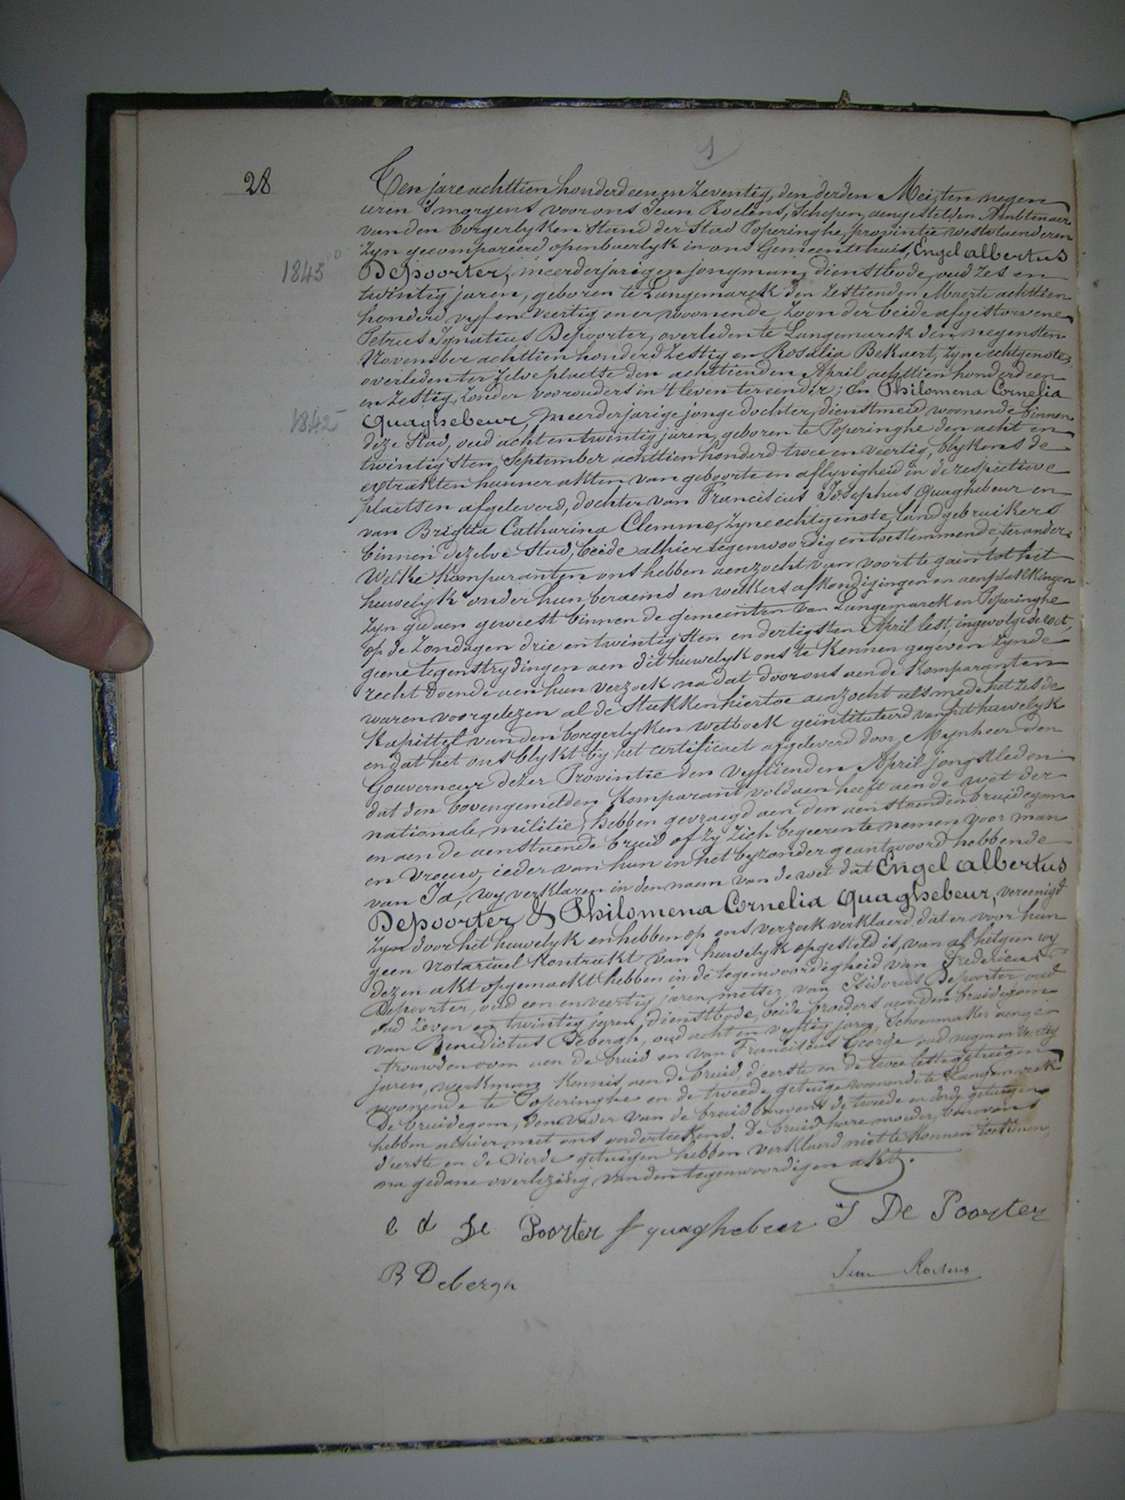 1
28
Ten jare achttien honderd een en zeventig, den derden Mei, ten negen
uren 's morgens voor ons Jean Roelens, Schepen, aengestelden Ambtenaer
van den borgerlyken Stand der Stad Poperinghe, provintie westvlaenderen
zyn gecompareerd openbaerlyk in ons Gemeentehuis, Engel Albertus
1845
Depoorter, meerderjarigen jongman, dienstbode, oud zes en
twintig jaren, geboren te Langemarck den zestienden Maerte achttien
honderd vyf en veertig en er woonende, zoon der beide afgestorvene
Petrus Ignatius Depoorter, overleden te Langemarck den negensten
November achttien honderd zestig en Rosalia Bekaert, zyne echtgenote,
overleden ter zelve plaetse den achttienden April achttien honderd een
en zestig, zonder voorouders in 't leven ter eender; En Philomena Cornelia
1842
Quaghebeur, meerderjarige jonge dochter, dienstmeid, woonende binnen
deze Stad, oud acht en twintig jaren, geboren te Poperinghe den acht en
twintigsten September achttien honderd twee en veertig, blykens de
extrakten hunner akten van geboorte en aflyvigheid in de respectieve
plaetsen afgeleverd, dochter van Franciscus Josephus Quaghebeur en
van Brigitta Catharina Clemme, zyne echtgenote, landgebruikers
binnen dezelve Stad, beide alhier tegenwoordig en toestemmende ter ander.
Welke komparanten ons hebben aenzocht van voort te gaen tot het
huwelyk onder hun beraemd en welkers afkondigingen en aenplakkingen
zyn gedaen geweest binnen de gemeenten van Langemarck en Poperinghe
op de Zondagen drie en twintigsten en dertigsten April lest, ingevolge de wet
geene tegenstrydingen aen dit huwelyk ons te kennen gegeven zynde
recht doende aen hun verzoek na dat door ons aen de komparanten
waren voorgelezen al de stukken hiertoe aenzocht alsmede het zesde
kapittel van den borgerlyken wetboek geïntituleerd van het huwelyk
en dat het ons blykt by het certificaet afgeleverd door Mynheer den
Gouverneur dezer Provintie den vyftienden April jongstleden
dat den bovengemelden komparant voldaen heeft aen de wet der
nationale militie, hebben gevraegd aen den aenstaenden bruidegom
en aen de aenstaende bruid of zy zich begeeren te nemen voor man
en vrouw, ieder van hun in het byzonder geantwoord hebbende
van Ja, wy verklaren in den naem van de wet dat Engel Albertus
Depoorter & Philomena Cornelia Quaghebeur, vereenigd
zyn door het huwelyk en hebben op ons verzoek verklaerd dat er voor hun
geen Notarieel kontrakt van huwelyk opgesteld is, van al hetgeen wy
dezen akt opgemaekt hebben in de tegenwoordigheid van Fredericus
Depoorter, oud een en veertig jaren, metser, van Isidorus Depoorter oud
oud zeven en twintig jaren, dienstbode, beide broeders aen den bruidegom
van Benedictus Debergh, oud acht en vyftig jaren, Schoenmaker aenge-
trouwden oom aen de bruid en van Franciscus George oud negen en veertig
jaren, werkman, kennis aen de bruid d'eerste en de twee leste getuigen
woonende te Poperinghe en de tweede getuige woonende te Langemarck
De bruidegom, den vader van de bruid benevens de tweede en derde getuigen
hebben alhier met ons onderteekend. De bruid hare moeder, benevens
d'eerste en de vierde getuigen hebben verklaerd niet te konnen teekenen,
na gedane overlezing van den tegenwoordigen akt.
e d De Poorter f quaghebeur I De Poorter
B Debergh Jean Roelens